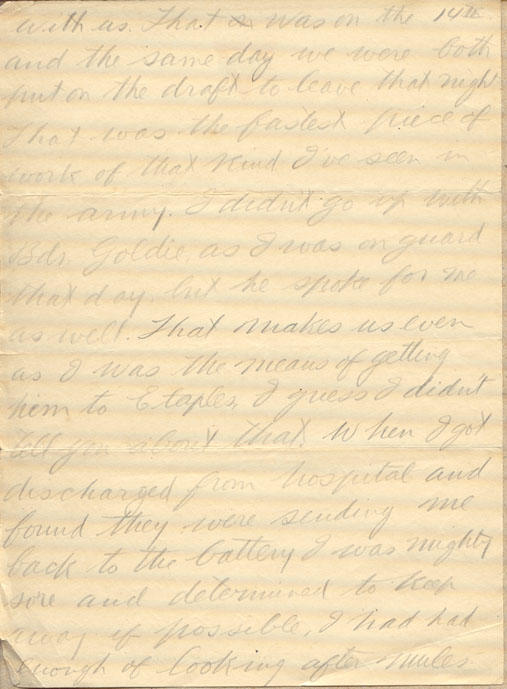 with us. That was on the 14th
and the same day we were both
put on the draft to leave that night
That was the fastest piece of
work of that kind I've seen in
the army. I didn't go up with
Bdr. Goldie, as I was on guard
that day, but he spoke for me
as well. That makes us even
as I was the means of getting
him to Etaples, I guess I didn't
tell you about that. When I got
discharged from hospital and
found they were sending me
back to the battery I was mighty
sore and determined to keep
away if possible, I had had
enough of looking after mules